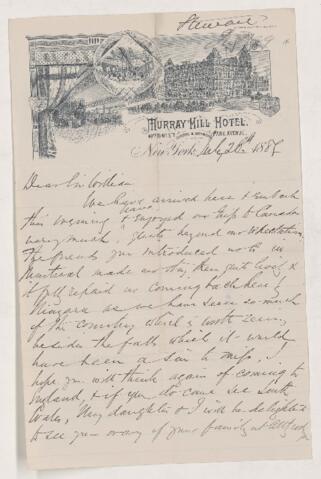 Stewart
MURRAY HILL HOTEL.
PARK AVENUE.
New York, July 20th 1887
Dear Sir William
We have arrived here & embark
this evening & have enjoyed our trip to Canada
very much, quite beyond our expectations
The friends you introduced us to in
Montreal made our stay there quite lively &
it full repaid us coming back here by
Niagara as we have seen so much
of the country which is worth seeing
besides the falls which it would
have been a sin to miss. I
hope you will think again of coming to
England, & if you do come see South
Wales, My daughter & I will be delighted
to see you or any of your family at